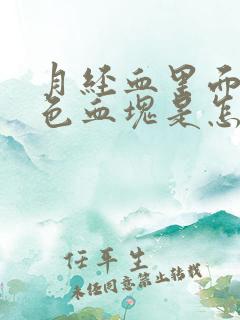 月经血里面
色血块是怎
任平生
未经同意禁止转载